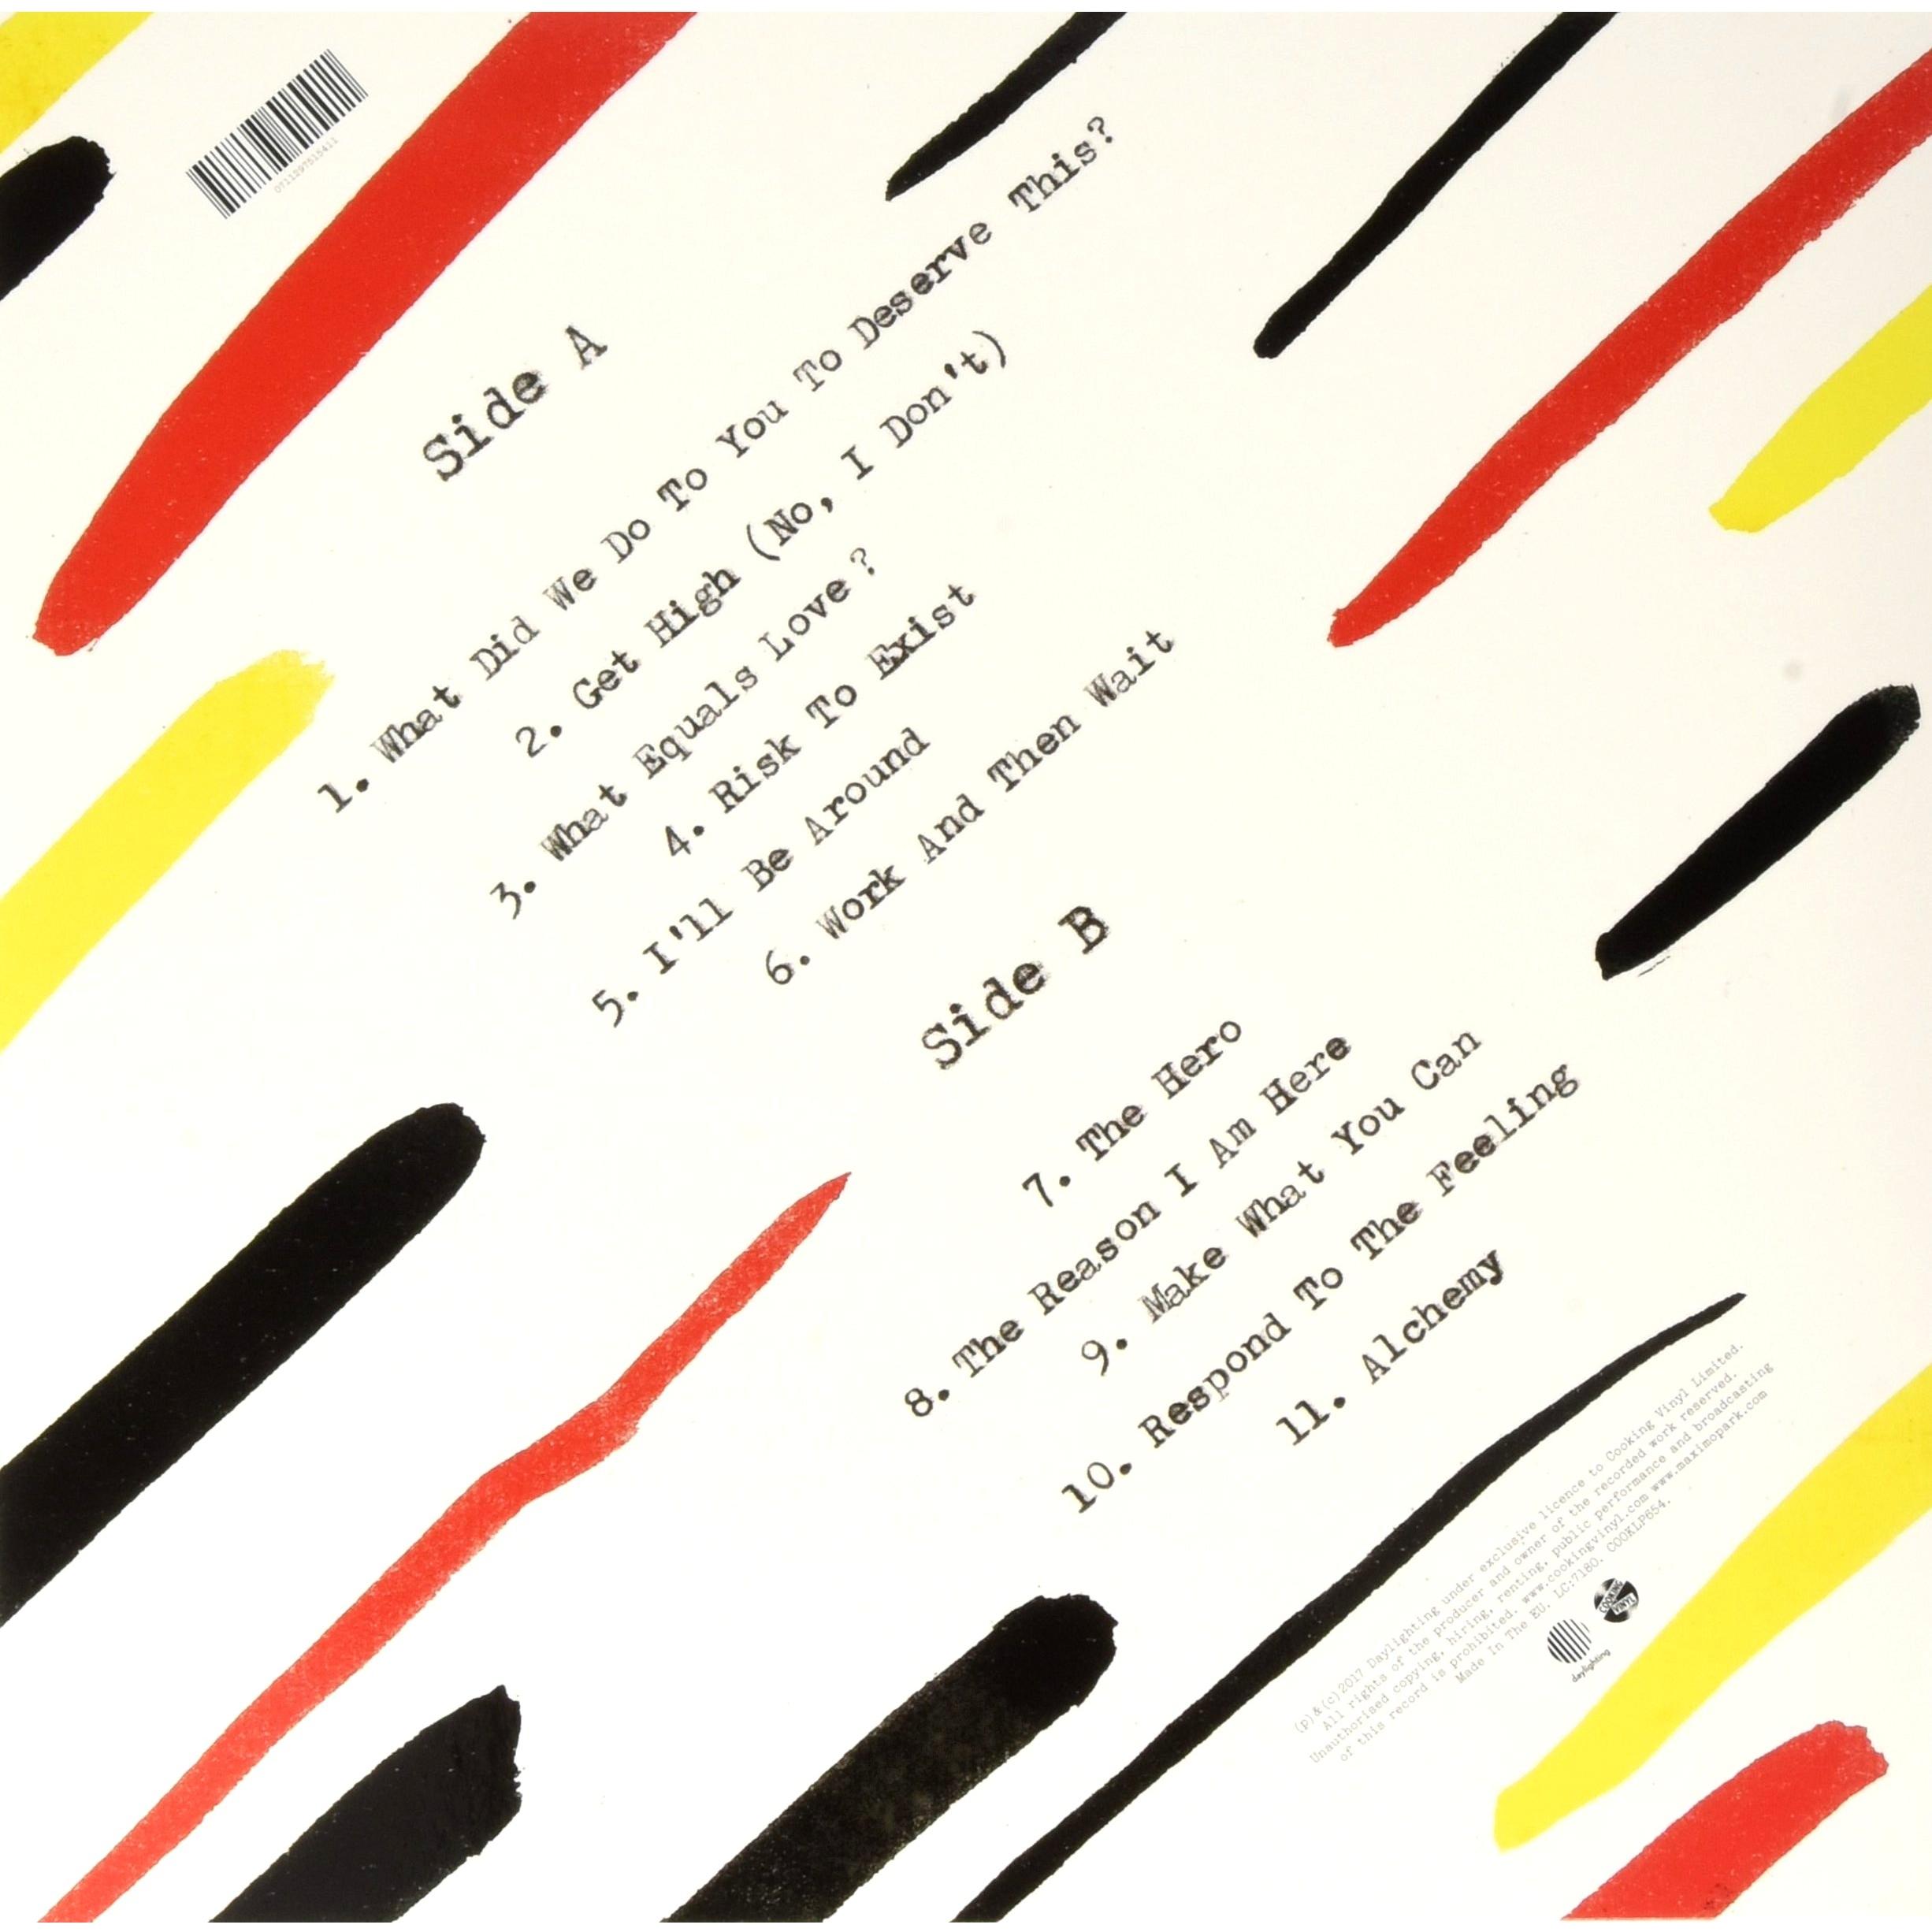 0711297515411
Side A
1. What Did We Do To You To Deserve This?
2. Get High (No, I Don't)
3. What Equals Love?
4. Risk To Exist
5. I'll Be Around
6. Work And Then Wait
Side B
7. The Hero
8. The Reason I Am Here
9. Make What You Can
10. Respond To The Feeling
11. Alchemy
(p)&(c)2017 Daylighting under exclusive licence to Cooking Vinyl Limited.
All rights of the producer and owner of the recorded work reserved.
Unauthorised copying, hiring, renting, public performance and broadcasting
of this record is prohibited. www.cookingvinyl.com www.maximopark.com
Made In The EU. LC:7180. COOKLP654.
daylighting
COOKING
VINYL